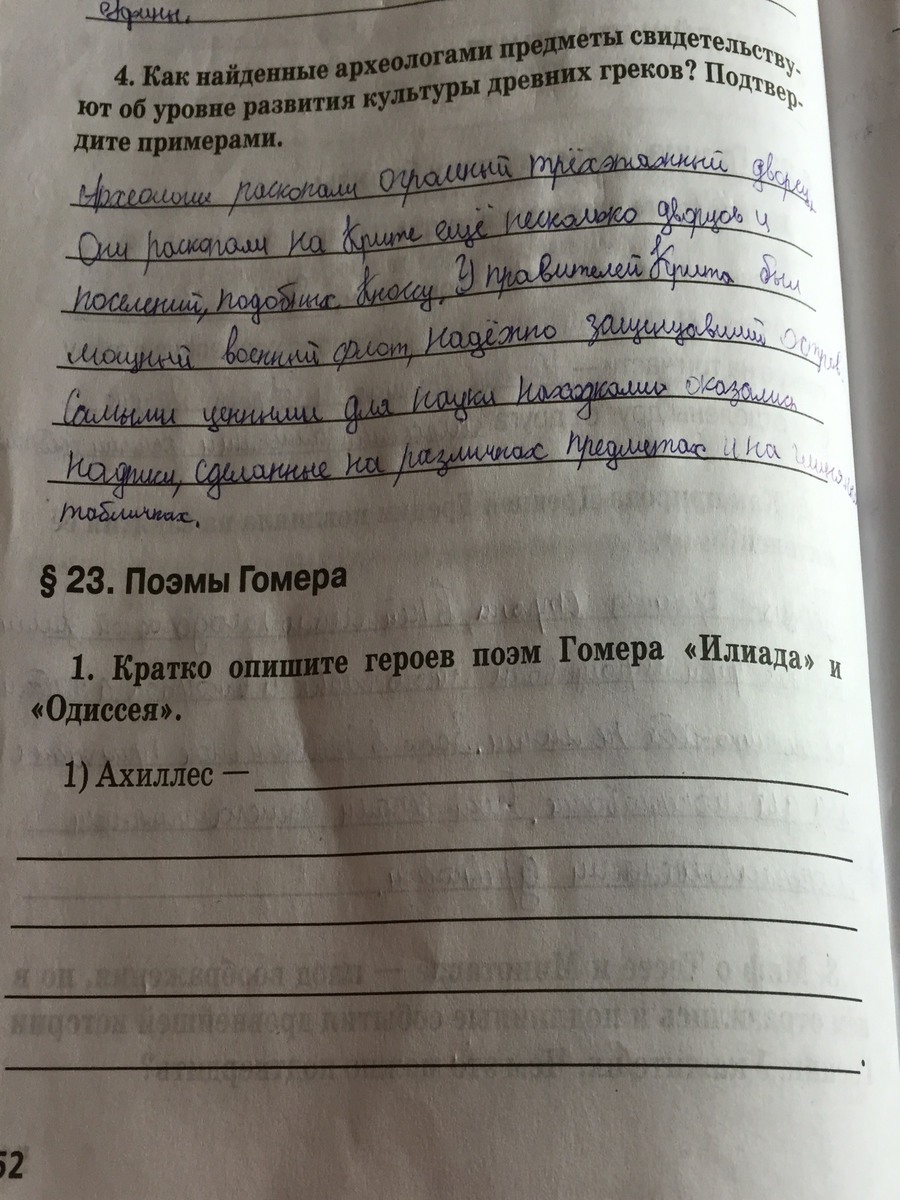 Афины.
4. Как найденные археологами предметы свидетельству-
ют об уровне развития культуры древних греков? Подтвер-
дите примерами.
Археологи раскопали огромный трёхэтажный дворец.
Они раскопали на Крите ещё несколько дворцов и
поселений, подобных Кноссу. У правителей Крита был
мощный военный флот, надёжно защищавший остров.
Самыми ценными для науки находками оказались
надписи, сделанные на различных предметах и на глиняных
табличках.
§ 23. Поэмы Гомера
1. Кратко опишите героев поэм Гомера «Илиада» и
«Одиссея».
1) Ахиллес —
52